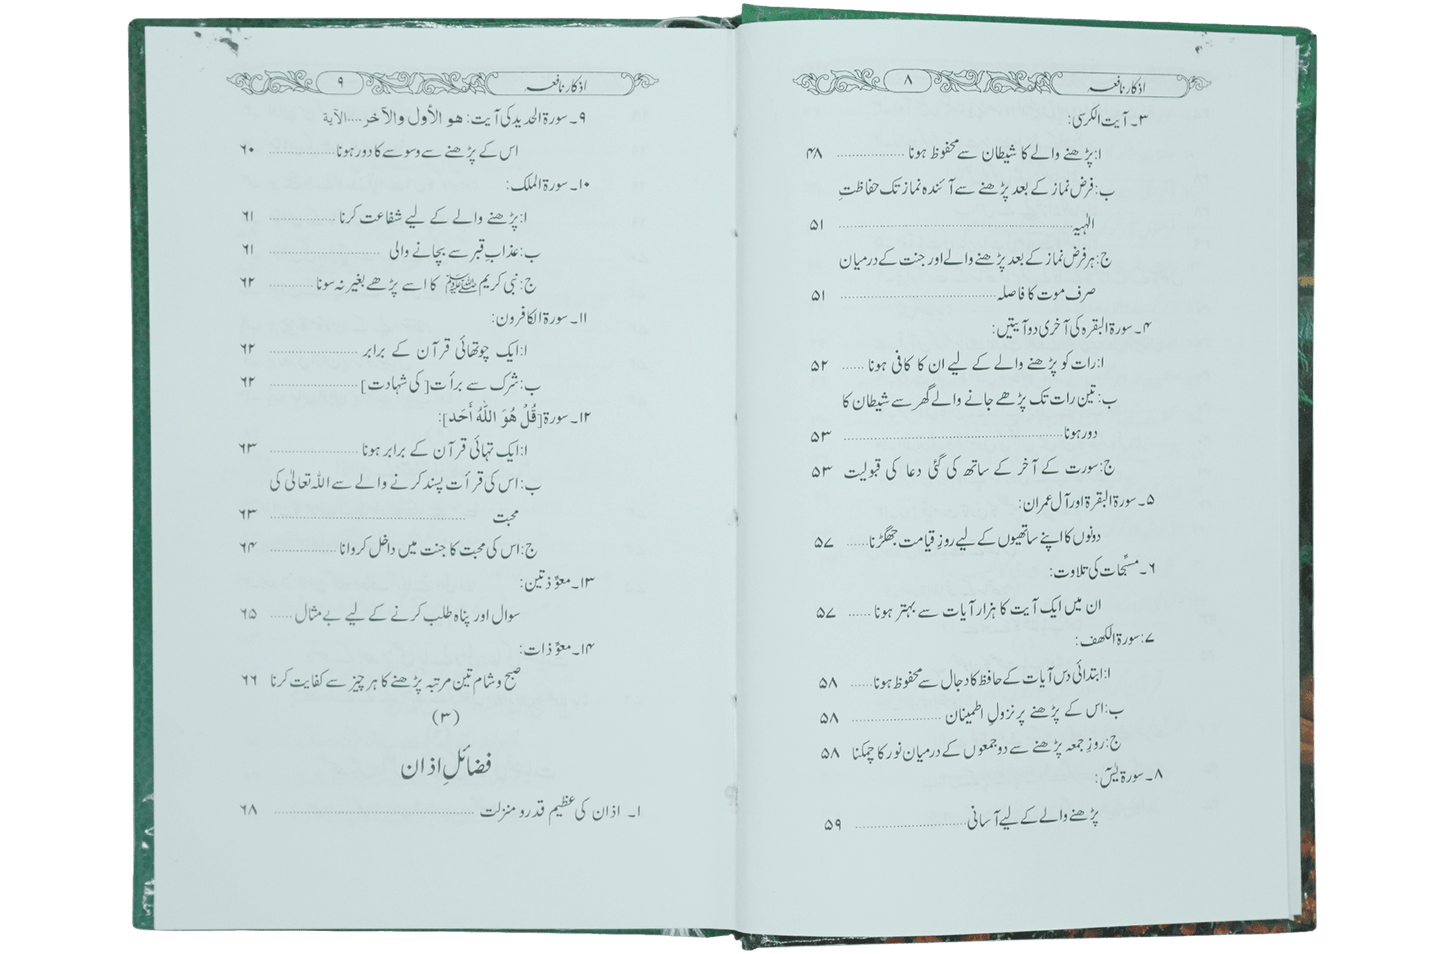 اذکار نافعہ ۸
۳۔ آیت الکرسی:
ا: پڑھنے والے کا شیطان سے محفوظ ہونا .................. ۴۸
ب: فرض نماز کے بعد پڑھنے سے آئندہ نماز تک حفاظتِ
الٰہیہ .................. ۵۱
ج: ہر فرض نماز کے بعد پڑھنے والے اور جنت کے درمیان
صرف موت کا فاصلہ .................. ۵۱
۴۔ سورۃ البقرہ کی آخری دو آیتیں:
ا: رات کو پڑھنے والے کے لیے ان کا کافی ہونا ...... ۵۲
ب: تین رات تک پڑھے جانے والے گھر سے شیطان کا
دور ہونا .................. ۵۳
ج: سورت کے آخر کے ساتھ کی گئی دعا کی قبولیت ۵۳
۵۔ سورۃ البقرۃ اور آل عمران:
دونوں کا اپنے ساتھیوں کے لیے روزِ قیامت جھگڑنا ...... ۵۷
۶۔ مسبِّحات کی تلاوت:
ان میں ایک آیت کا ہزار آیات سے بہتر ہونا ...... ۵۷
۷: سورۃ الکھف:
ا: ابتدائی دس آیات کے حافظ کا دجال سے محفوظ ہونا ...... ۵۸
ب: اس کے پڑھنے پر نزولِ اطمینان .................. ۵۸
ج: روزِ جمعہ پڑھنے سے دو جمعوں کے درمیان نور کا چمکنا ۵۸
۸۔ سورۃ یٰسٓ:
پڑھنے والے کے لیے آسانی .................. ۵۹
اذکار نافعہ ۹
۹۔ سورۃ الحدید کی آیت: هو الأول والآخر ....الآية
اس کے پڑھنے سے وسوسے کا دور ہونا .................. ۶۰
۱۰۔ سورۃ الملک:
ا: پڑھنے والے کے لیے شفاعت کرنا .................. ۶۱
ب: عذابِ قبر سے بچانے والی .................. ۶۱
ج: نبی کریم ﷺ کا اسے پڑھے بغیر نہ سونا .................. ۶۲
۱۱۔ سورۃ الکافرون:
ا: ایک چوتھائی قرآن کے برابر .................. ۶۲
ب: شرک سے برأت [کی شہادت] .................. ۶۲
۱۲۔ سورۃ [قُلْ هُوَ اللّٰهُ أَحَد]:
ا: ایک تہائی قرآن کے برابر ہونا .................. ۶۳
ب: اس کی قرأت پسند کرنے والے سے اللہ تعالیٰ کی
محبت .................. ۶۳
ج: اس کی محبت کا جنت میں داخل کروانا .................. ۶۴
۱۳۔ معوِّذتین:
سوال اور پناہ طلب کرنے کے لیے بے مثال ...... ۶۵
۱۴۔ معوِّذات:
صبح و شام تین مرتبہ پڑھنے کا ہر چیز سے کفایت کرنا ۶۶
(۳)
فضائلِ اذان
۱۔ اذان کی عظیم قدر و منزلت .................. ۶۸